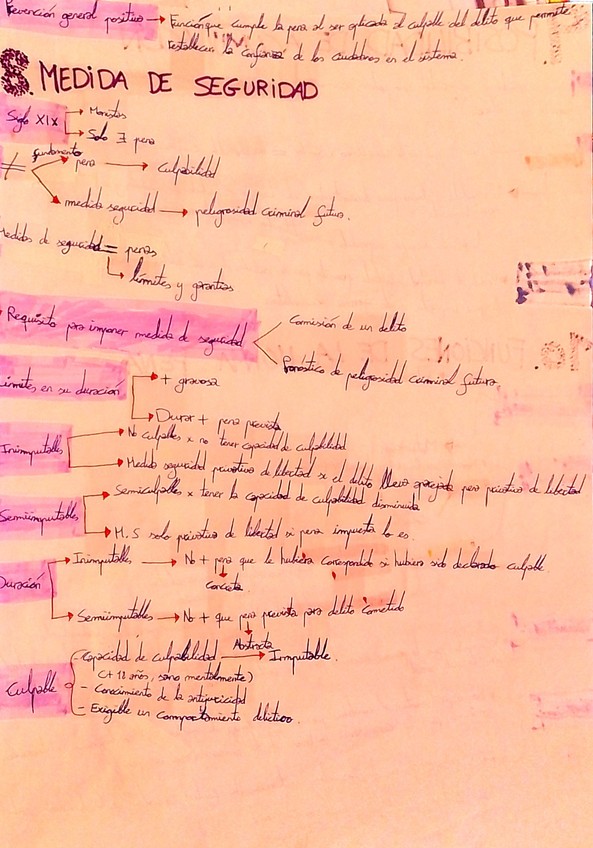 Prevención general positiva → Función que cumple la pena al ser aplicada al culpable del delito que permite
restablecer la confianza de los ciudadanos en el sistema.
8. MEDIDA DE SEGURIDAD
Siglo XIX → Monistas
→ Solo ∃ pena
≠ fundamento
pena → culpabilidad
medida seguridad → peligrosidad criminal futura.
Medidas de seguridad = penas
↳ límites y garantías
Requisito para imponer medida de seguridad
Comisión de un delito
Pronóstico de peligrosidad criminal futura
Límites en su duración → + gravosa
→ Durar + pena prevista
Inimputables → No culpables x no tener capacidad de culpabilidad
→ Medida seguridad privativa de libertad x el delito lleva aparejada pena privativa de libertad
Semiimputables → Semiculpables x tener la capacidad de culpabilidad disminuida
→ M.S solo privativa de libertad si pena impuesta lo es.
Duración → Inimputables → No + pena que le hubiera correspondido si hubiera sido declarado culpable.
Concreta
→ Semiimputables → No + que pena prevista para delito cometido
Abstracta
Culpable
- Capacidad de culpabilidad → Imputable.
(+ 18 años, sano mentalmente)
- Conocimiento de la antijuricidad
- Exigible un comportamiento delictivo.